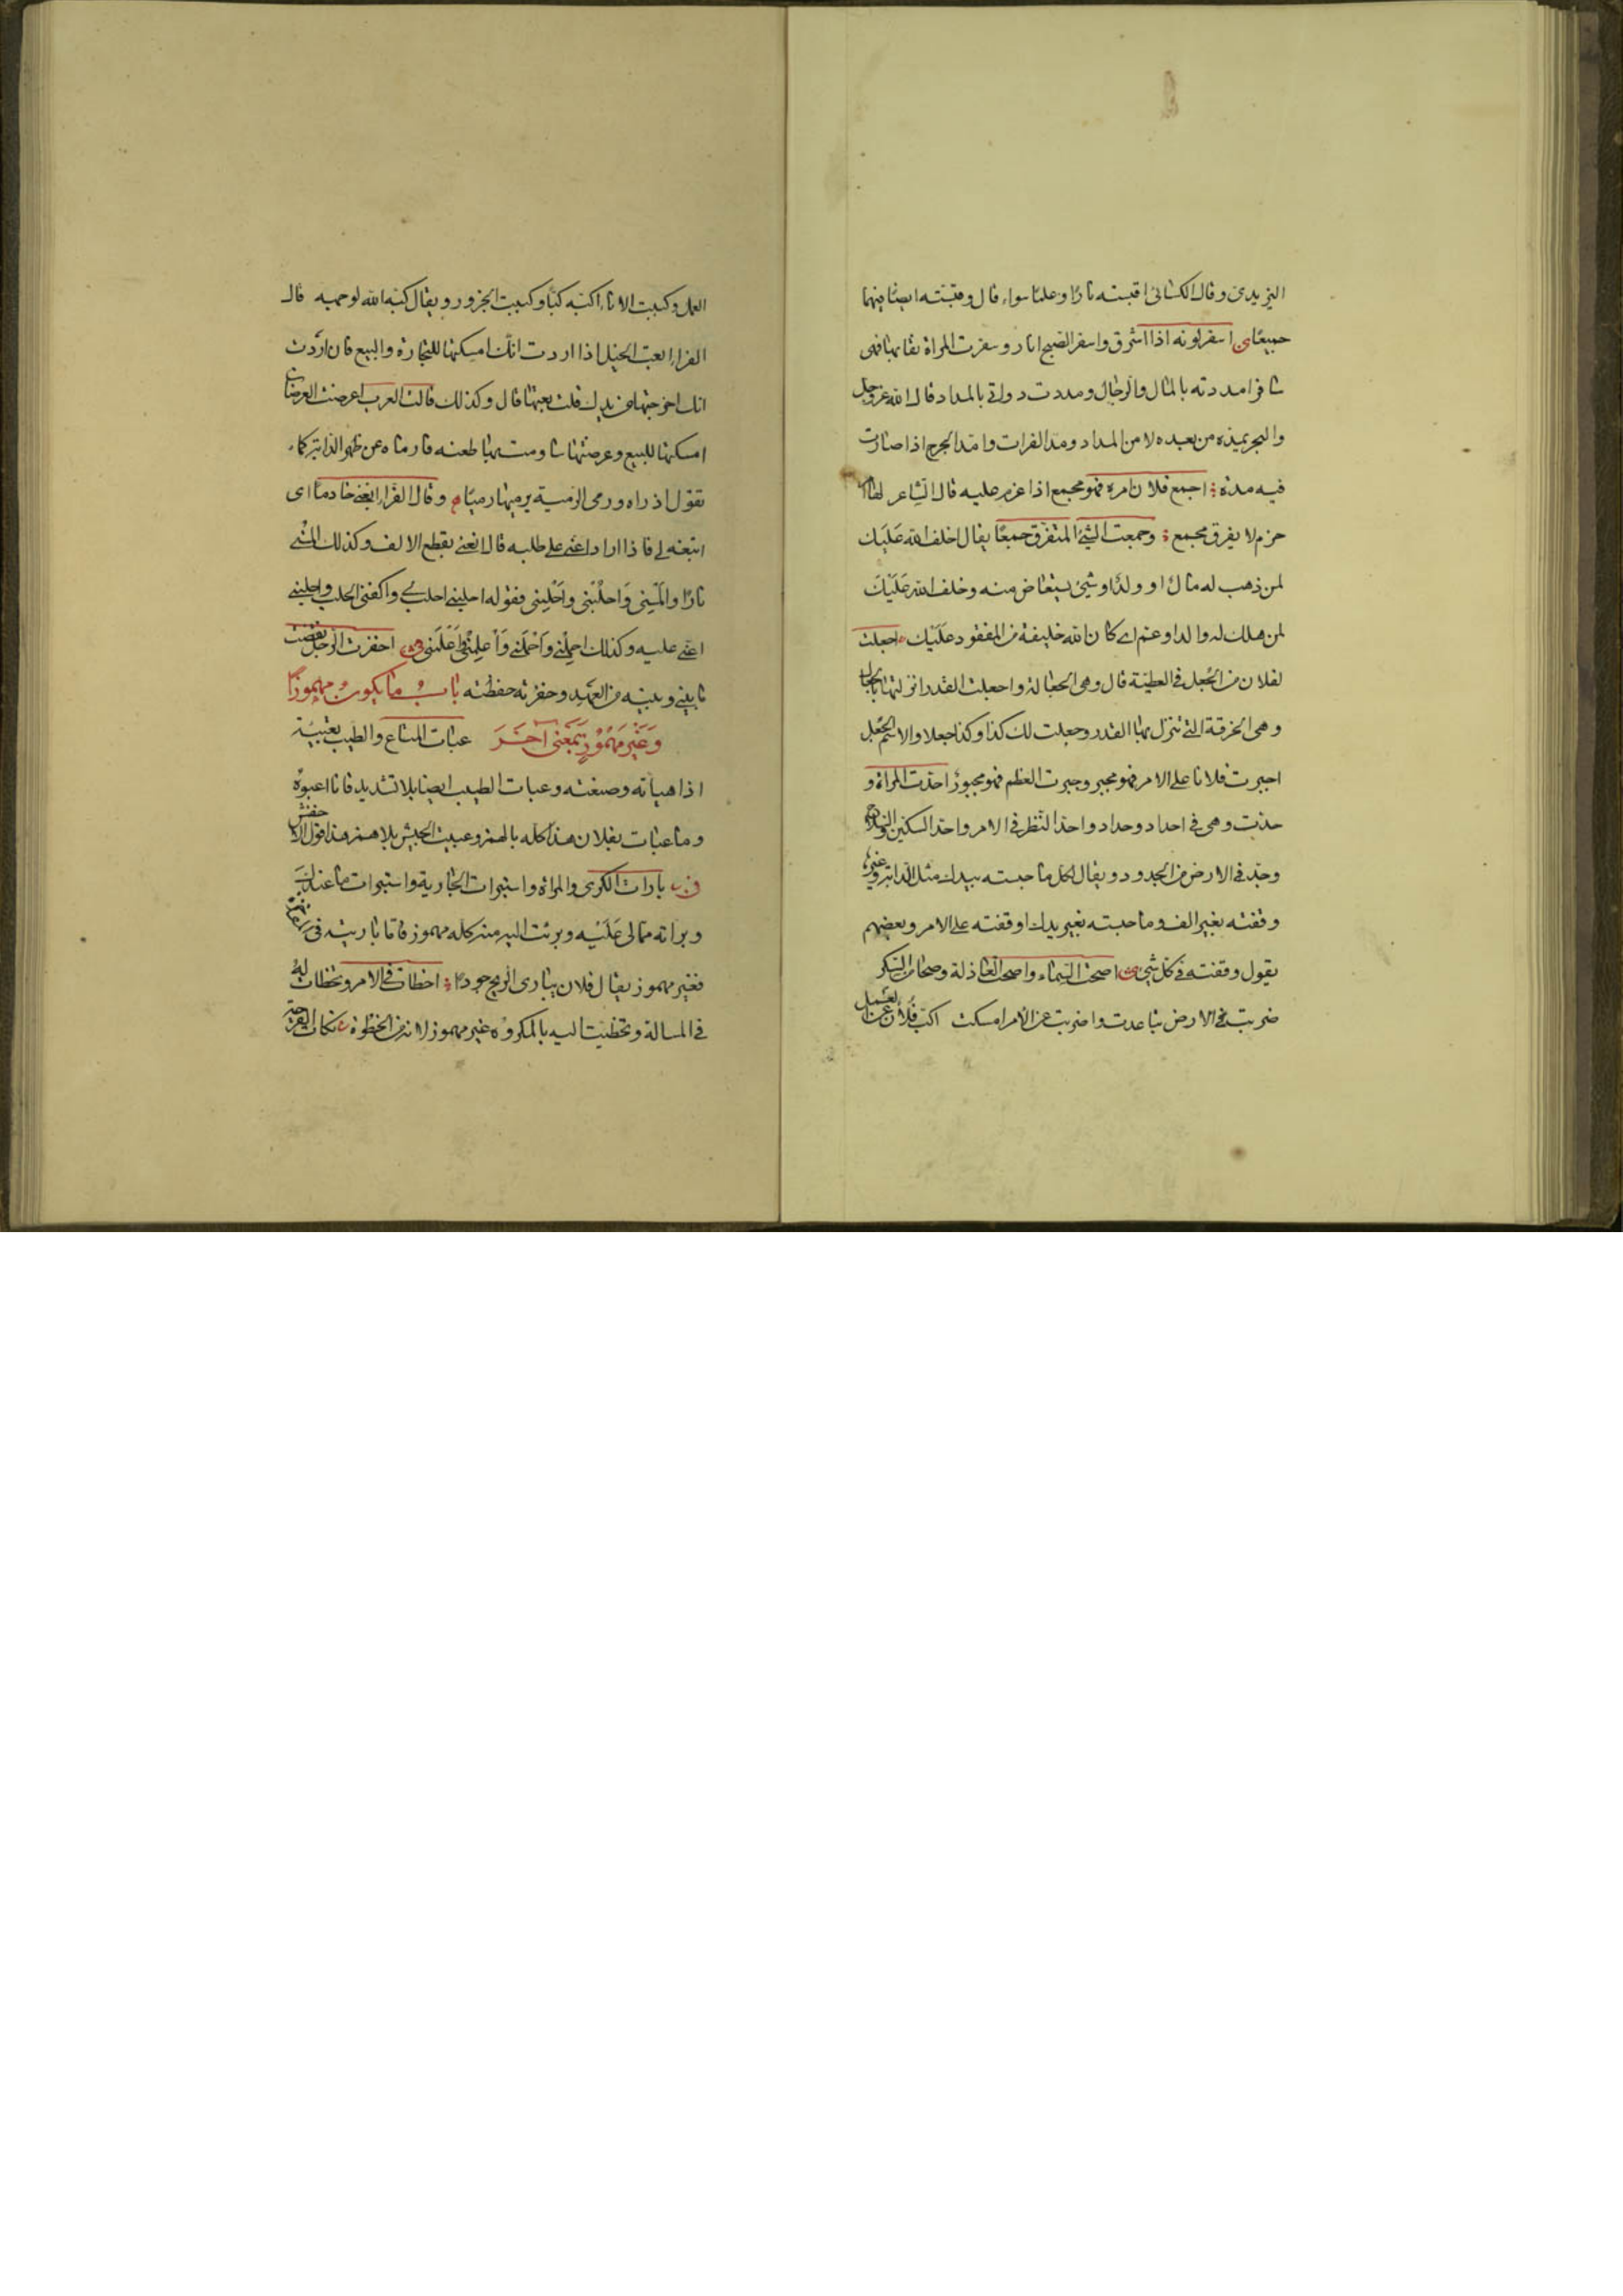 اليزيدى وقال الكسائى اقبسته نارًا وعلمًا سواء قال وقبسته ايضًا فيهما
جميعًا اسفر لونه اذا اشرق واسفر الصبح انار وسفرت المراة نقابها فهى
سافر امددته بالمال والرجال ومددت دواتى بالمداد قال الله عز وجل
والبحر يمده من بعده لا من المداد ومد الفرات وامد الجرح اذا صارت
فيه مدة اجمع فلان امره فهو مجمع اذا عزم عليه قال الشاعر لها
حزم لا يفرق مجمع وجمعت الشئ المتفرق جمعًا يقال اخلف الله عَلَيك
لمن ذهب له مال او ولد او شئ يستعاض منه وخلف الله عَلَيْكَ
لمن هلك له والد او عم اى كان الله خليفة من المفقود عَلَيْك اجعلت
لفلان من الجُعل فى العطية قال وهى الجعالة واجعلت القدر انزلتها بالجعال
وهى الخرقة التى تنزل بها القدر وجعلت لك كذا وكذا جعلا والاسم الجُعل
اجبرت فلانا على الامر فهو مجبر وجبرت العظم فهو مجبور احدّت المراة و
حدّت وهى فى احداد وحداد واحد النظر فى الامر واحد السكين والسلاح
وحدّ فى الارض من الحدود ويقال لكل ما حبسته بيدك مثل الدابة وغيره
وقفته بغير الف وما حبسته بغير يدك اوقفته على الامر وبعضهم
يقول وقفته فى كل شئ اصحت السماء واصحت العاذلة وصحا من السكر
ضربت فى الارض تباعدت واضربت عن الامر امسكت اكب فُلان عَلى العَمل
العمل وكببت الاناء اكبّه كبًا وكببت الجزور ويقال كبّه الله لوجهه قال
الفراء ابعت الخيل اذا اردت انك امسكتها للتجارة والبيع فان اردت
انك اخرجتها من يدك قلت بعتها قال وكذلك قالت العرب اعرضت العرضان
امسكتها للبيع وعرضتها ساومت بها طعنه فارماه عن ظهر الدابة كما
تقول اذراه ورمى الرمية يرميها رميًا وقال الفراء ابغنى خادمًا اى
ابتغه لى فاذا اراد اعنى على طلبه قال ابغنى بقطع الالف وكذلك المسنى
نارًا والمسنى وَاحلُبْنى واَحْلِبنى فقوله احلبنى احلب لى واكفنى الحلب واحلبنى
اعنى عليه وكذلك احمِلْنى وَاَحْمِلنى وَاعْكِمْنى وَاَعْكِمنى احفرت الرجل نقضت
ما بينى وبينه من العهد وخفرته حفظته بَابُ مَا يكون مهموزًا
وَغَيْر مَهْمُوزٍ بِمَعْنى آخَرَ عبات المتاع والطيب تعبية
اذا هيأته وصنعته وعبات الطيب ايضا بلا تشديد فانا اعبوه
وما عبات بفلان هذا كله بالهمز وعبيت الجيش بلا همز هذا قول الاخفش
بارات الكرى والمراة واستبرات الجارية واستبرات ما عندك
وبراته مما لى عَلَيْه وبرئت اليه منه كله مهموز فاما باريته فى
فغير مهموز يقال فلان يبارى الريح جودًا اخطات فى الامر وتخطات له
فى المسالة وتخطيت اليه بالمكروه غير مهموز لانه من الخطوة نكات القرحة